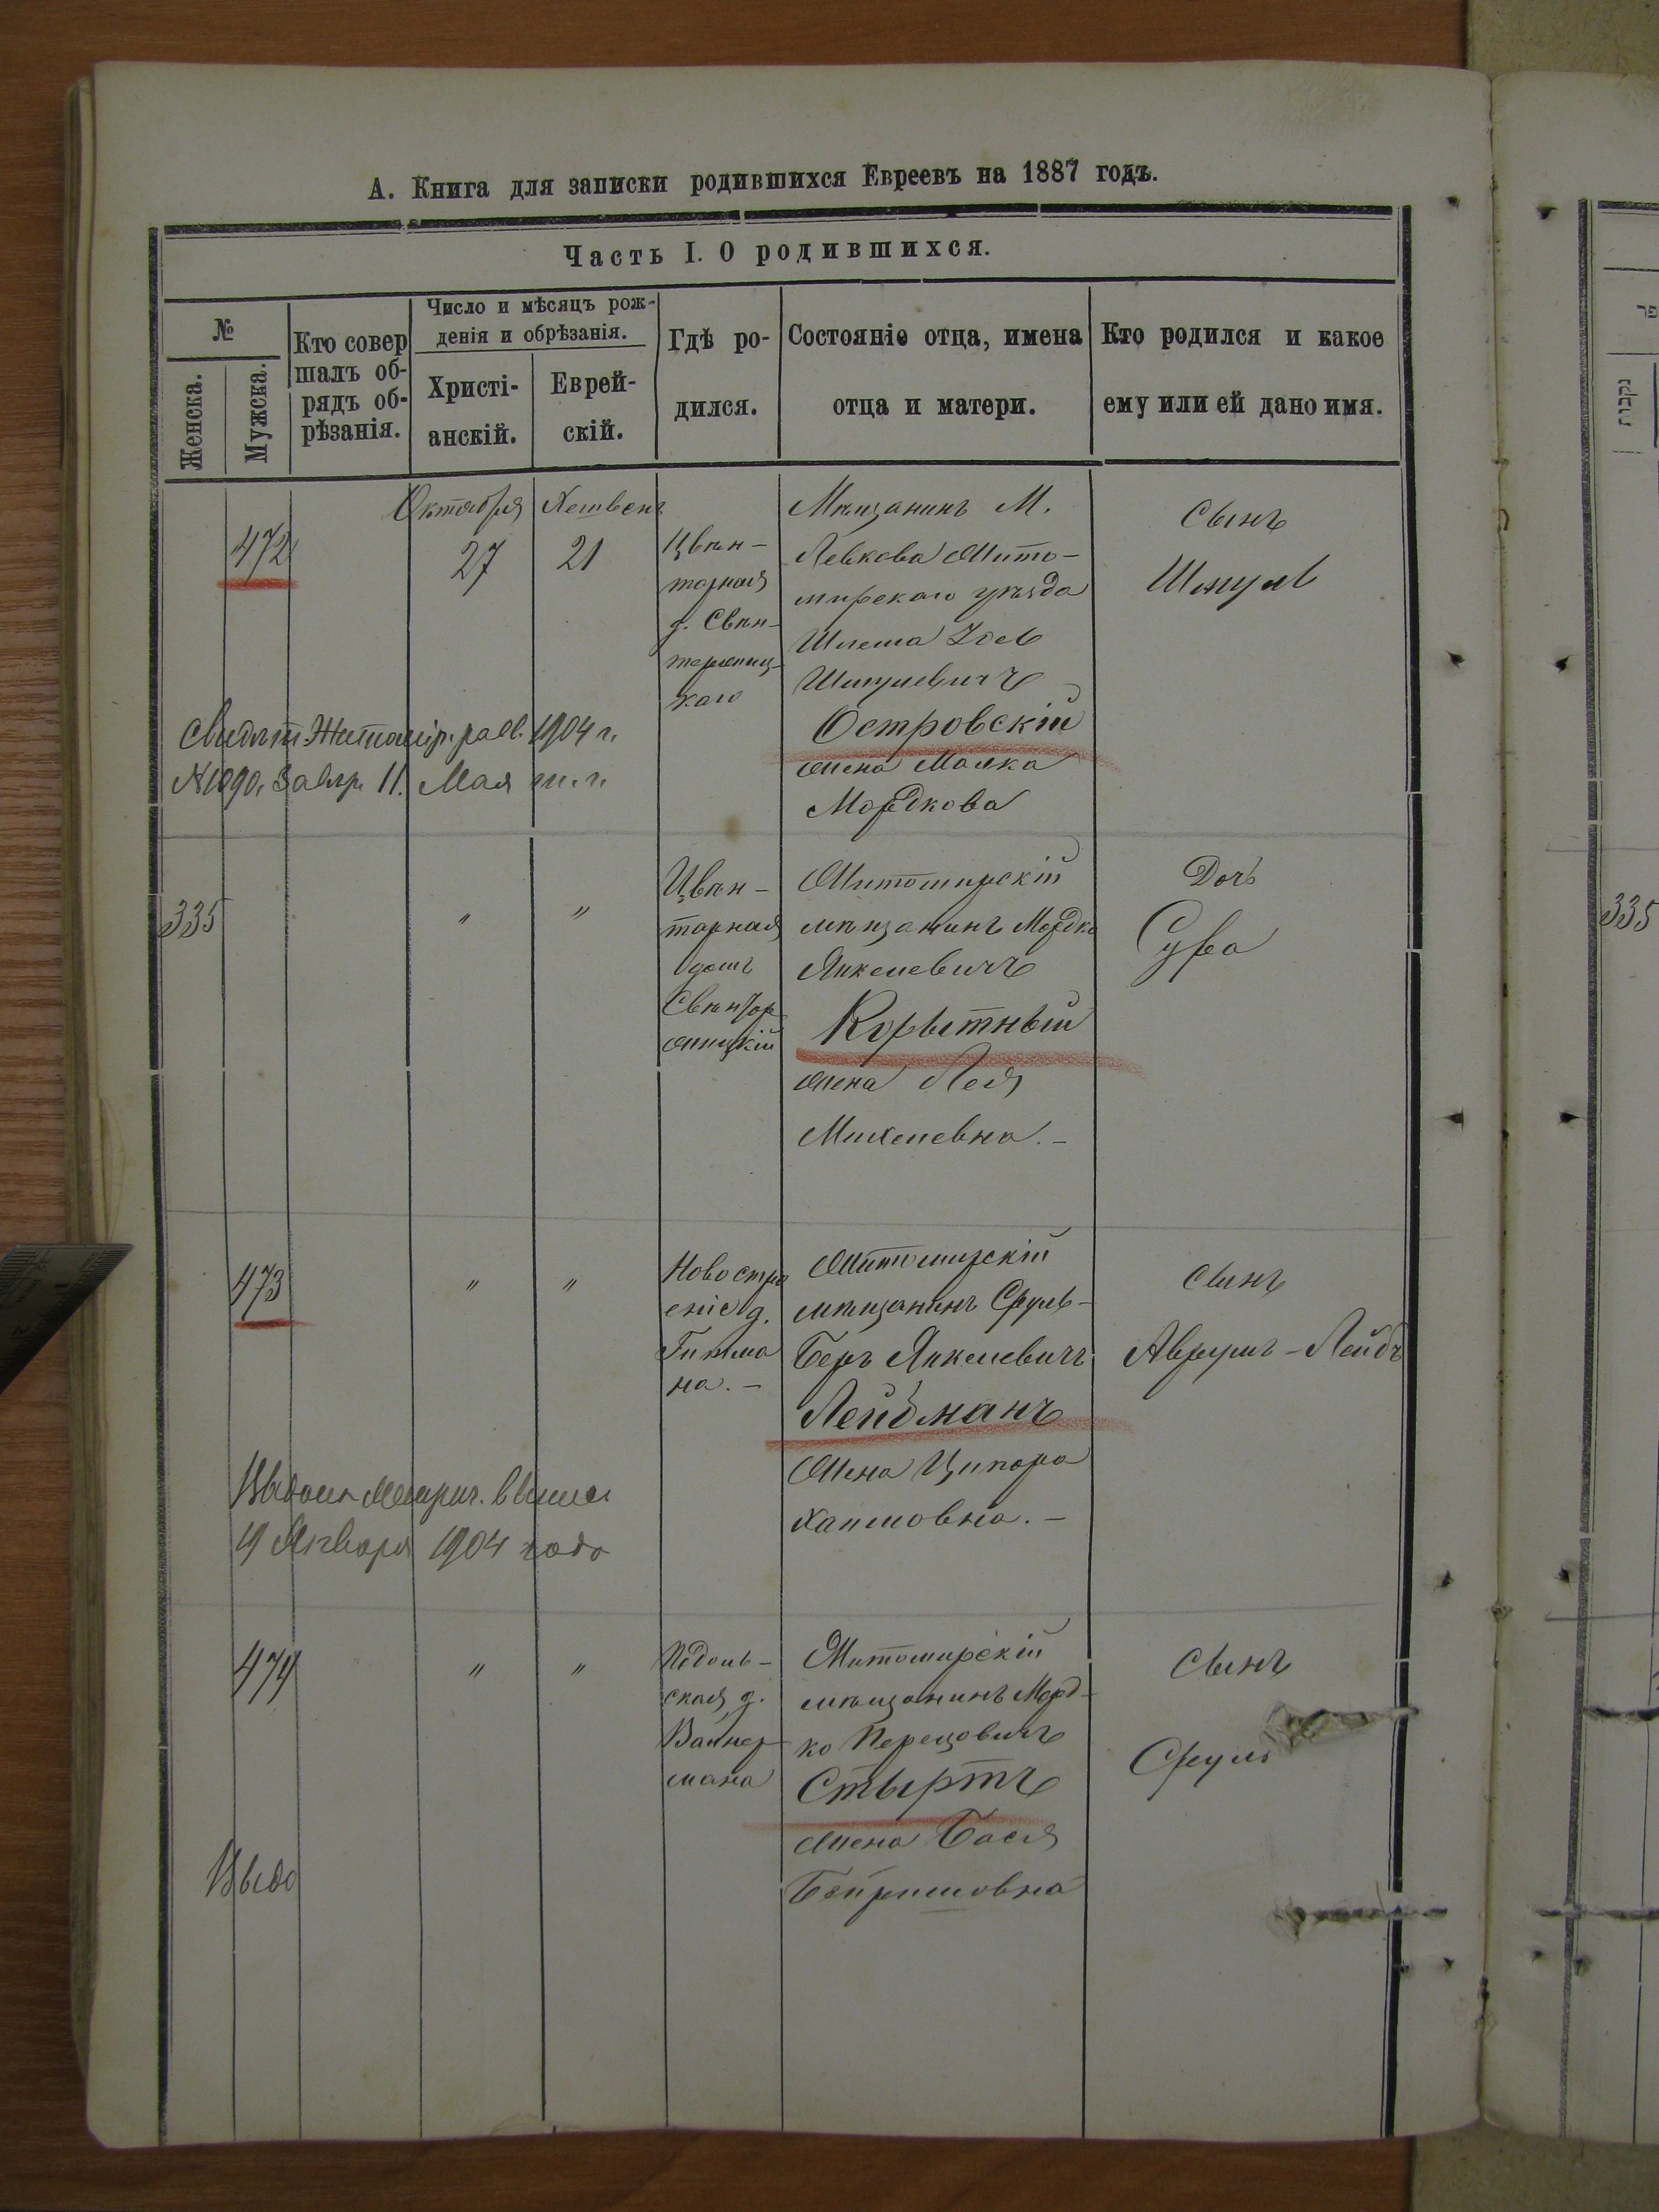 А. Книга для записки родившихся Евреевъ на 1887 годъ.
Часть I. О родившихся.
№
Женска.
Мужска.
Кто совер
шалъ об-
рядъ об-
рѣзанія.
Число и мѣсяцъ рож-
денія и обрѣзанія.
Христі-
анскій.
Еврей-
скій.
Гдѣ ро-
дился.
Состояніе отца, имена
отца и матери.
Кто родился и какое
ему или ей дано имя.
472
Октября
27
21
Цвин-
тарная
д.
каго
Мѣщанинъ М.
Левкова Жито-
мирскаго уѣзда
Шмулевичъ
Островскій
жена Малка
Мордкова
Сынъ
Шмуль
Свидѣт. Житомір. равв. 1904 г.
11. Мая т. г.
335
"
"
Цвин-
тарная
домъ
Житомирскій
мѣщанинъ Мордко
Янкелевичъ
Корытный
жена Лея
Михелевна. -
Дочь
Сура
473
"
"
Новостро
еніе д.
на. -
Житомирскій
мѣщанинъ Сруль-
Беръ Янкелевичъ
Лейдманъ
Жена Ципора
Хаимовна. -
Сынъ
Аврумъ - Лейбъ
Выдана Метрич. выпись
19 Января 1904 года
474
"
"
Подоль-
ская д.
Вайнер-
мана
Житомирскій
мѣщанинъ Морд-
ко Перецовичъ
Стыртъ
жена Бася
Бейришовна
Сынъ
Сруль
Выда
335
נקבות